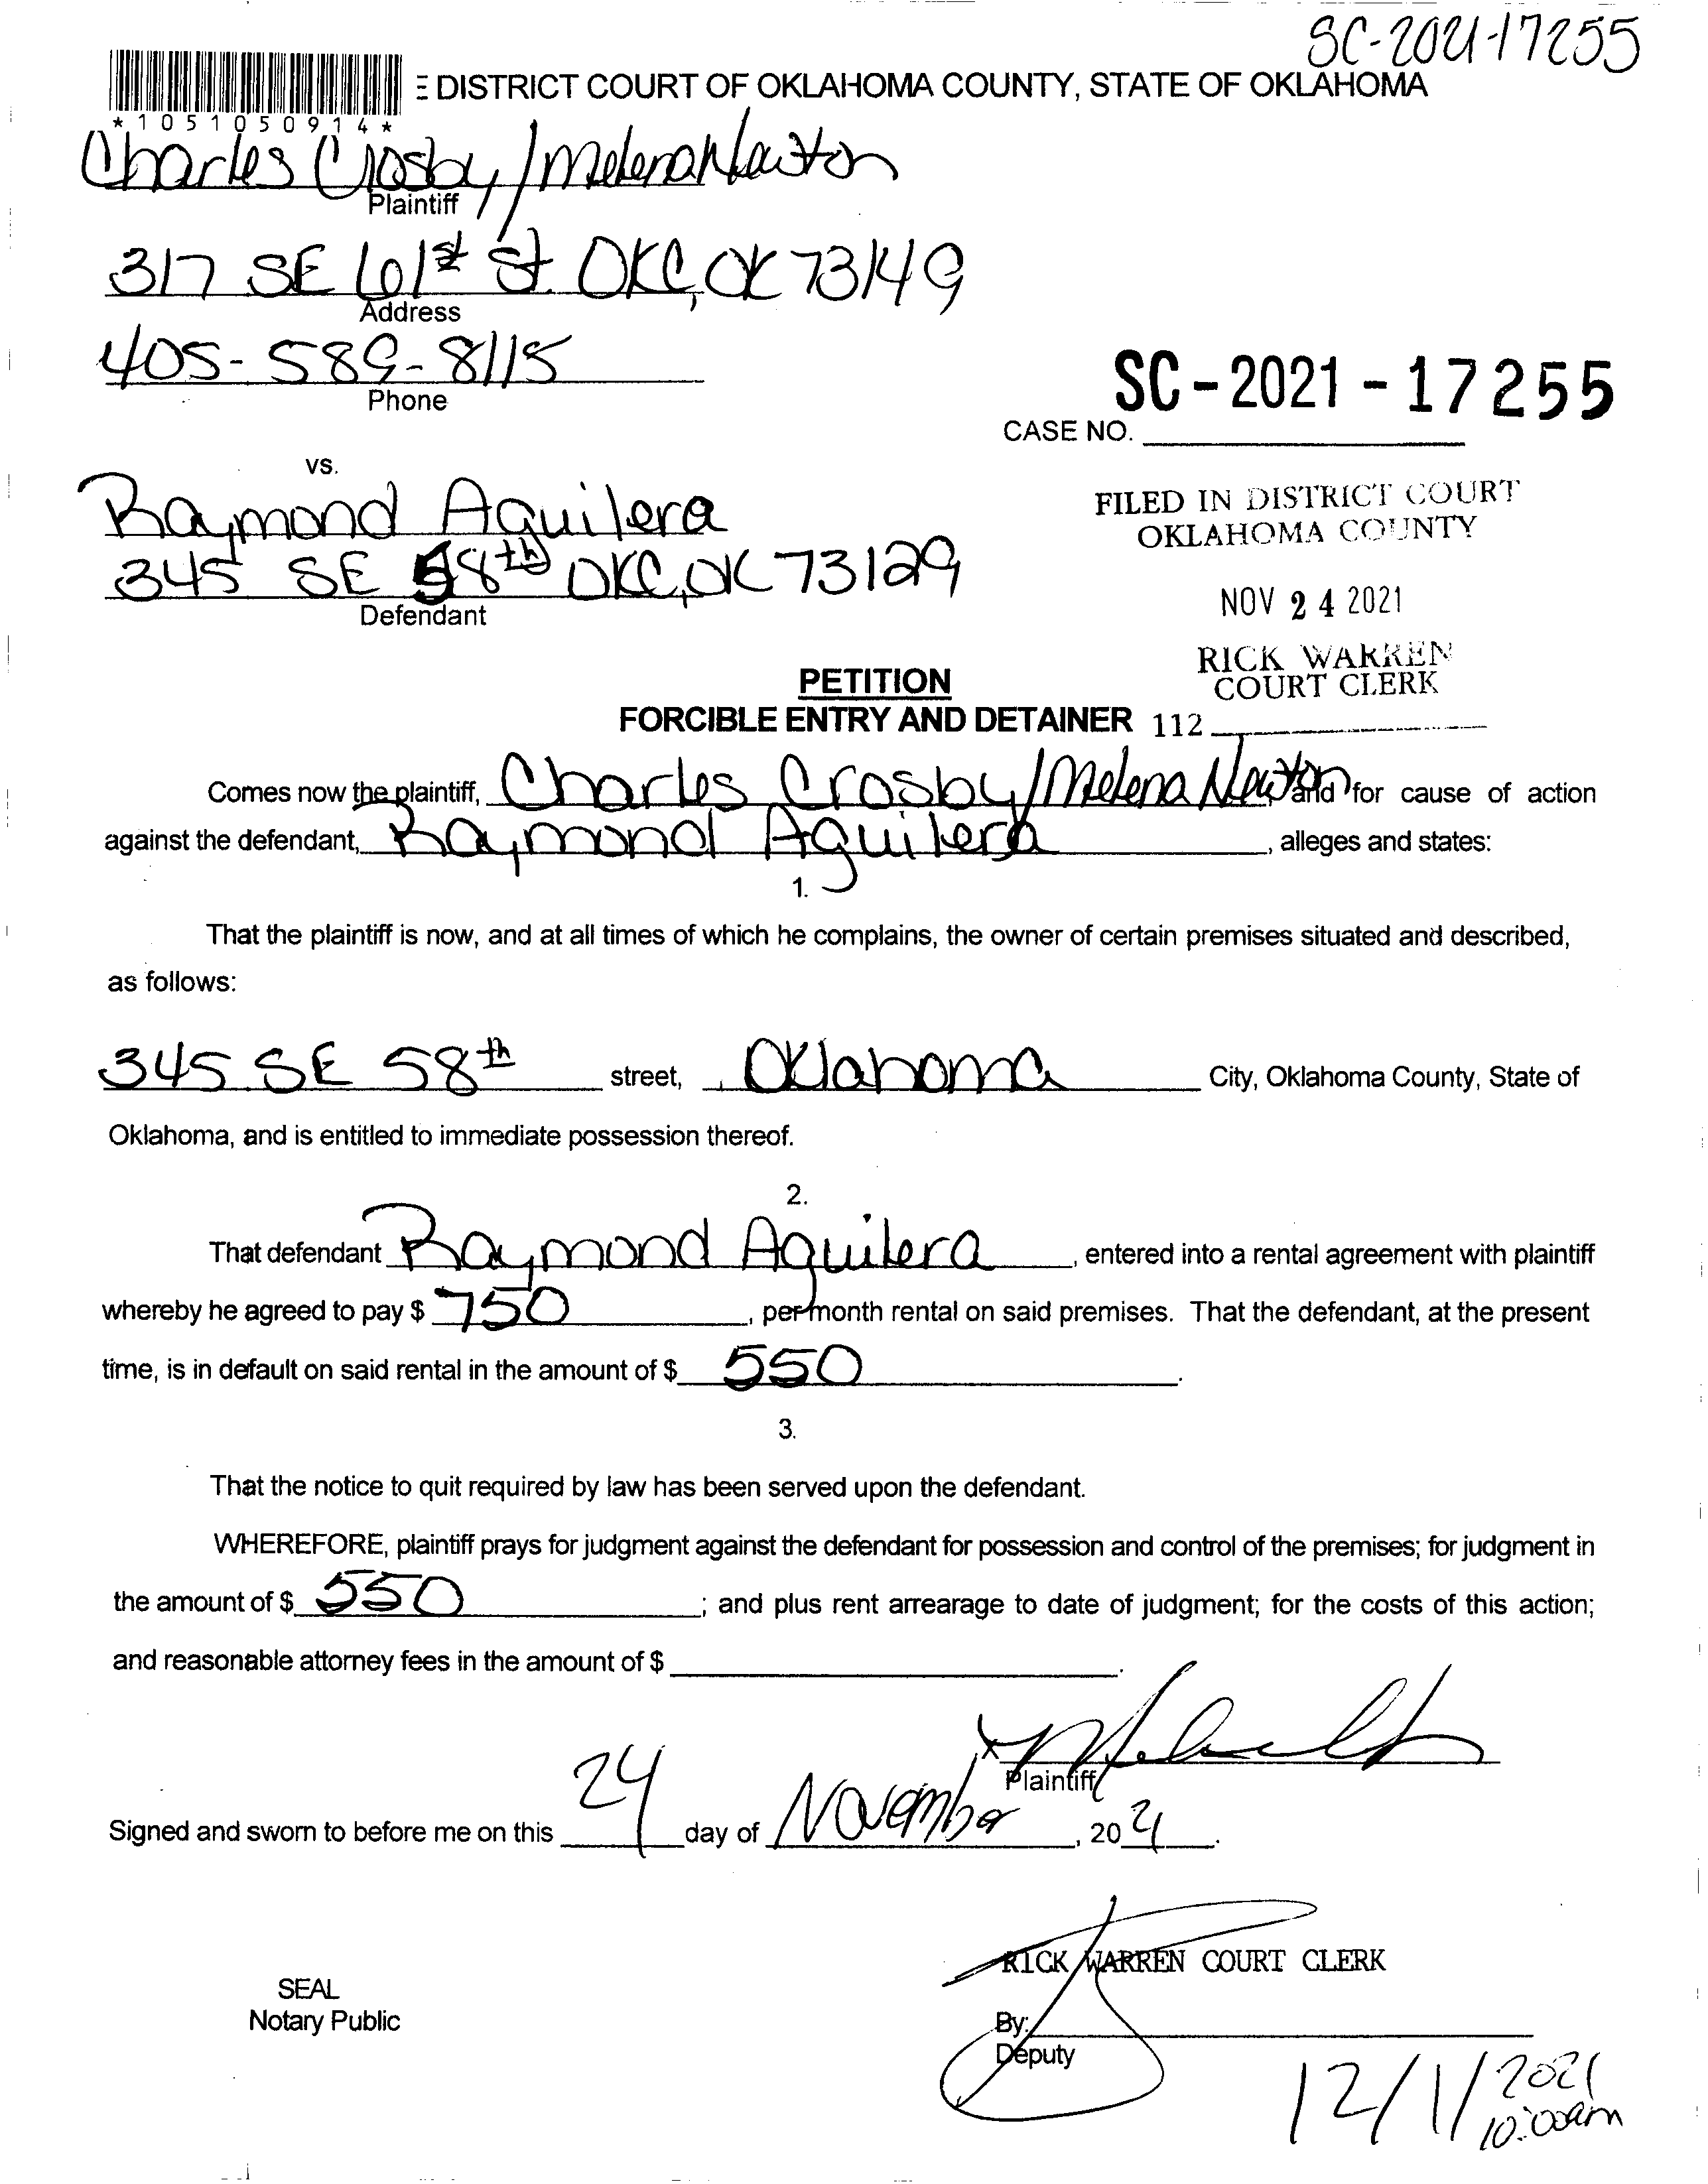 SC-2021-17255
E DISTRICT COURT OF OKLAHOMA COUNTY, STATE OF OKLAHOMA
* 1 0 5 1 0 5 0 9 1 4 *
Charles Crosby/Melena Newton
Plaintiff
317 SE 61st St. OKC, OK 73149
Address
405-589-8115
Phone
SC-2021-17255
CASE NO.
vs.
Raymond Aguilera
345 SE 58th OKC, OK 73129
Defendant
FILED IN DISTRICT COURT
OKLAHOMA COUNTY
NOV 24 2021
RICK WARREN
COURT CLERK
112
PETITION
FORCIBLE ENTRY AND DETAINER
Comes now the plaintiff, Charles Crosby/Melena Newton, and for cause of action
against the defendant, Raymond Aguilera, alleges and states:
1.
That the plaintiff is now, and at all times of which he complains, the owner of certain premises situated and described,
as follows:
345 SE 58th street, Oklahoma City, Oklahoma County, State of
Oklahoma, and is entitled to immediate possession thereof.
2.
That defendant Raymond Aguilera, entered into a rental agreement with plaintiff
whereby he agreed to pay $ 750, per month rental on said premises. That the defendant, at the present
time, is in default on said rental in the amount of $ 550.
3.
That the notice to quit required by law has been served upon the defendant.
WHEREFORE, plaintiff prays for judgment against the defendant for possession and control of the premises; for judgment in
the amount of $ 550; and plus rent arrearage to date of judgment; for the costs of this action;
and reasonable attorney fees in the amount of $ .
x
Plaintiff
Signed and sworn to before me on this 24 day of November, 2021.
RICK WARREN COURT CLERK
SEAL
Notary Public
By:
Deputy
12/1/2021
10:00am